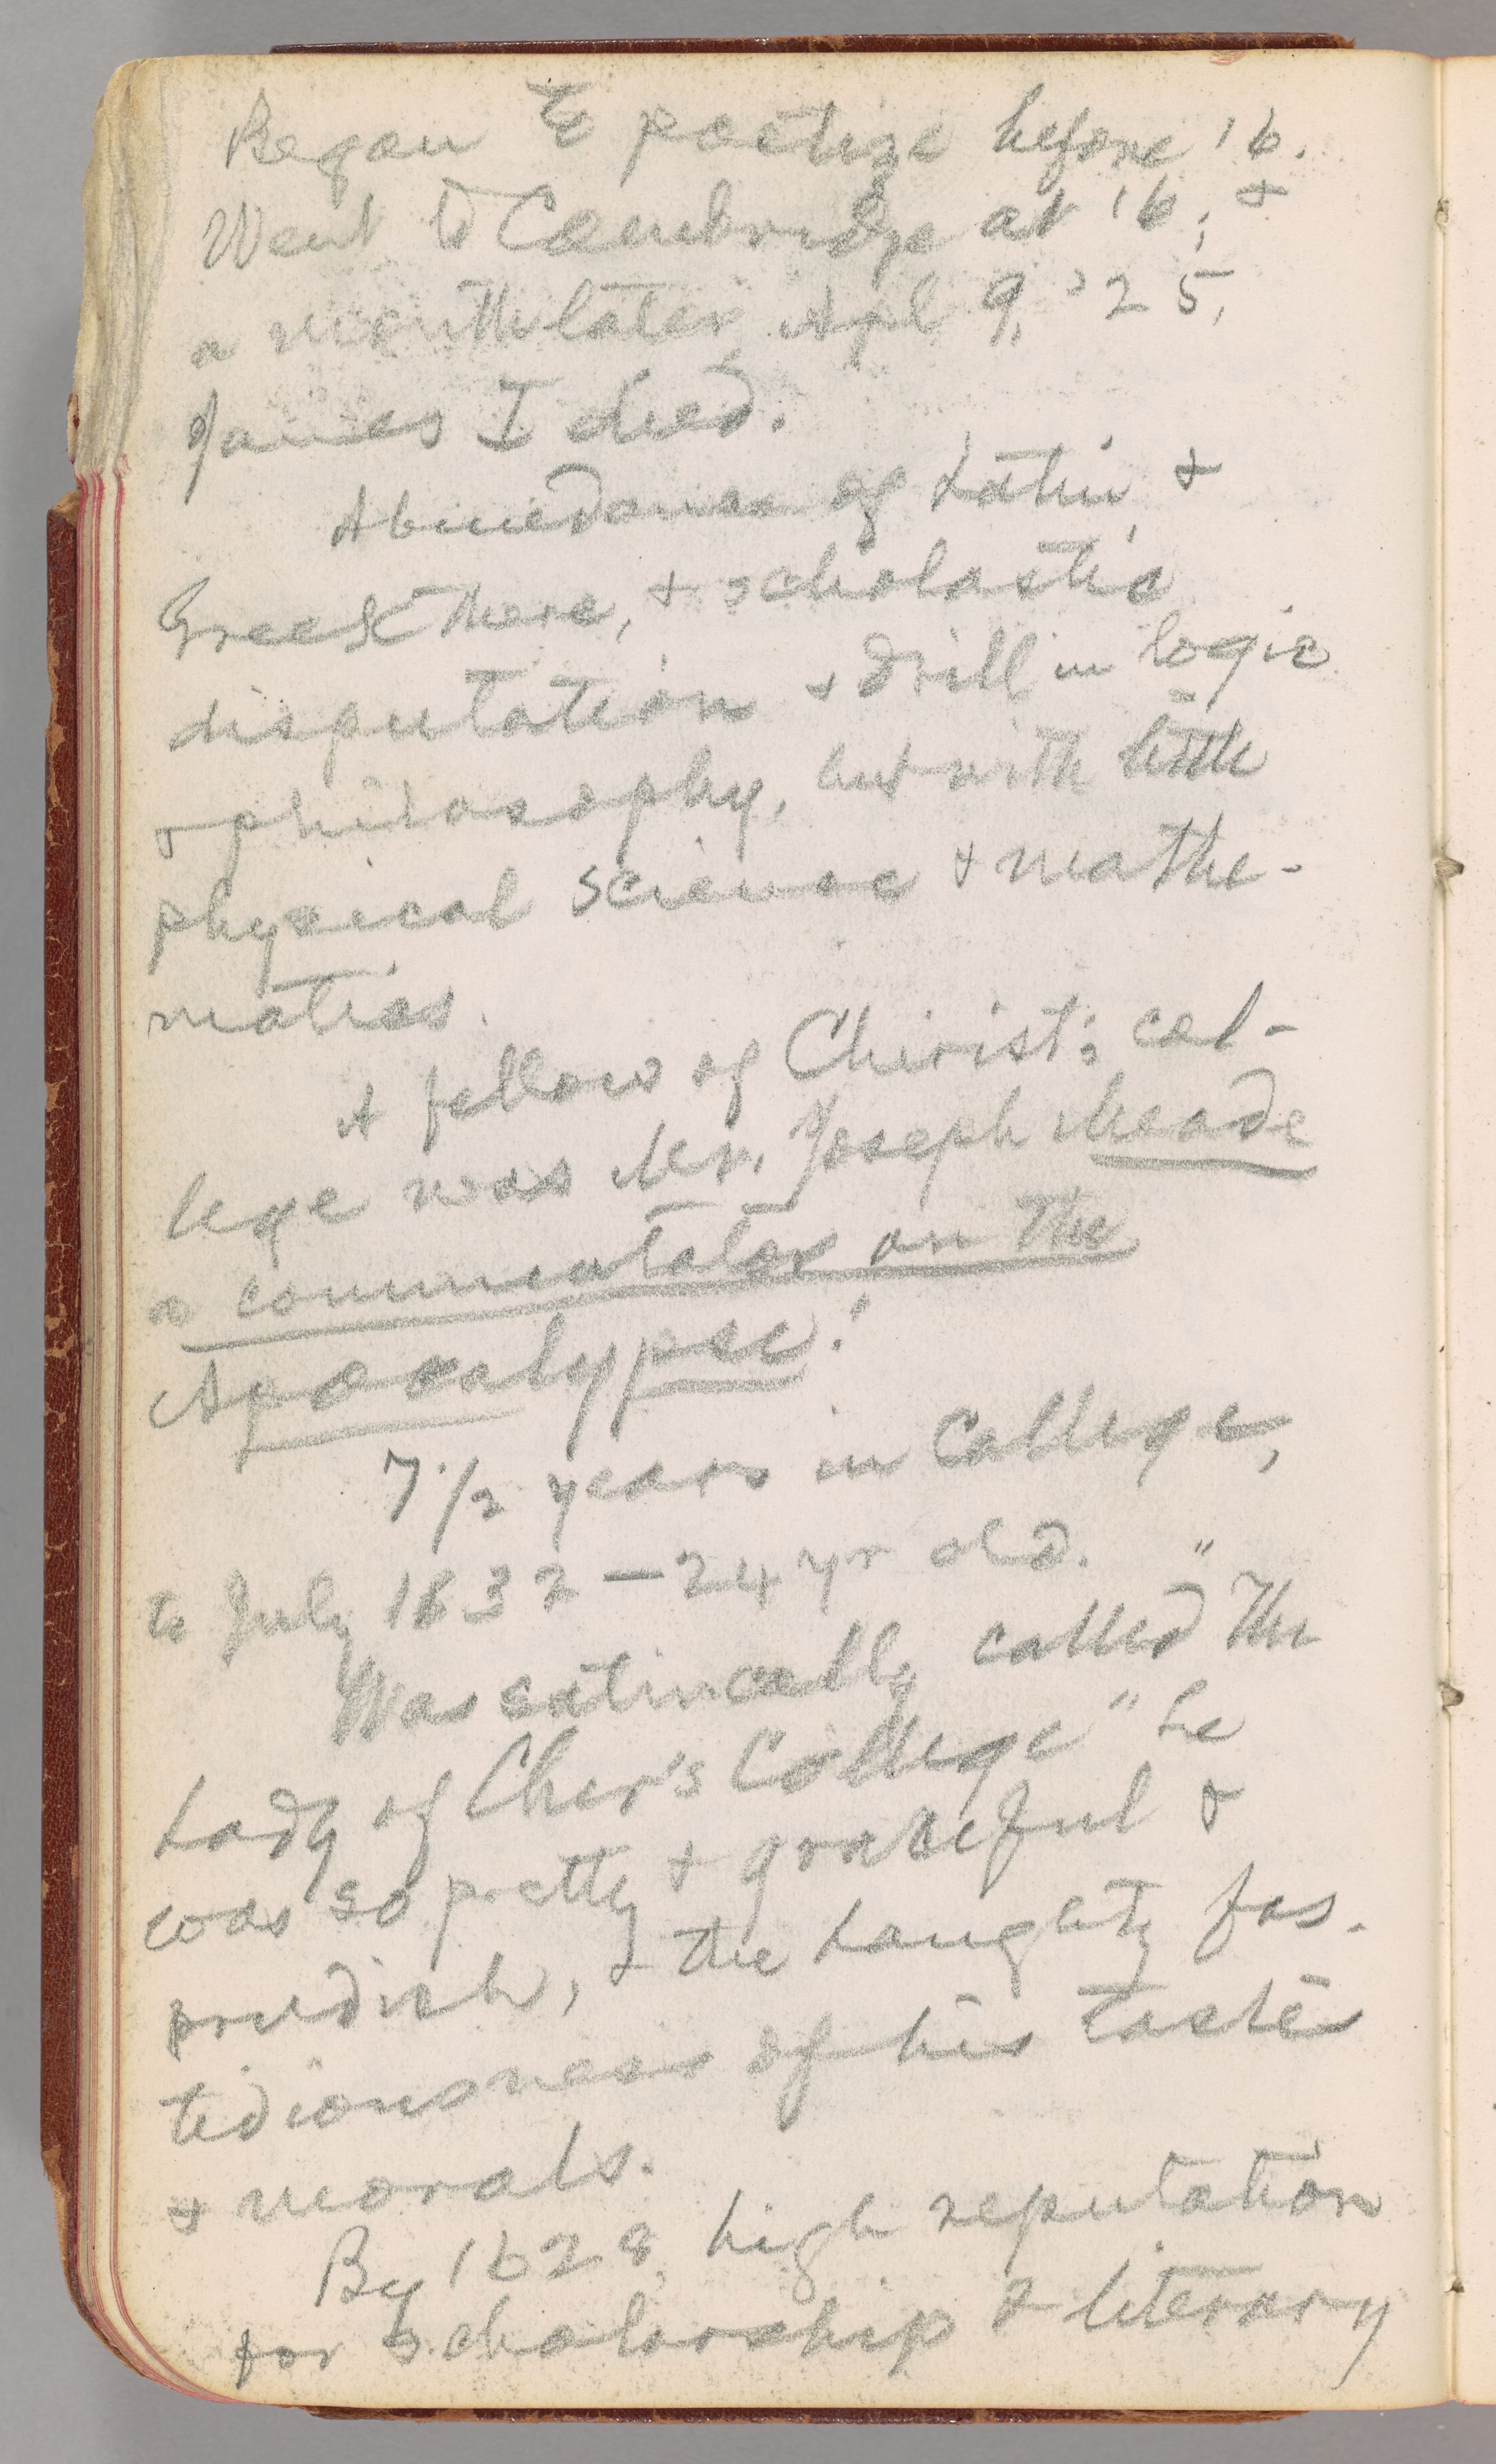 Began to poetize before 16.
Went to Cambridge at 16; &
a month later, Apl 9, '25,
James I died.
Abundance of Latin &
Greek there, & scholastic
disputation & drill in logic
& philosophy, but with little
physical science & mathe-
matics.
A fellow of Christ's col-
lege was Mr. Joseph Meade
a commentator on the
Apocalypse!
7 1/2 years in College,
to July 1632 — 24 yr old.
Was satirically called "The
Lady of Chr's College" he
was so pretty & graceful &
prudish, & the haughty fas-
tidiousness of his tastes
& morals.
By 1628, high reputation
for scholarship & literary